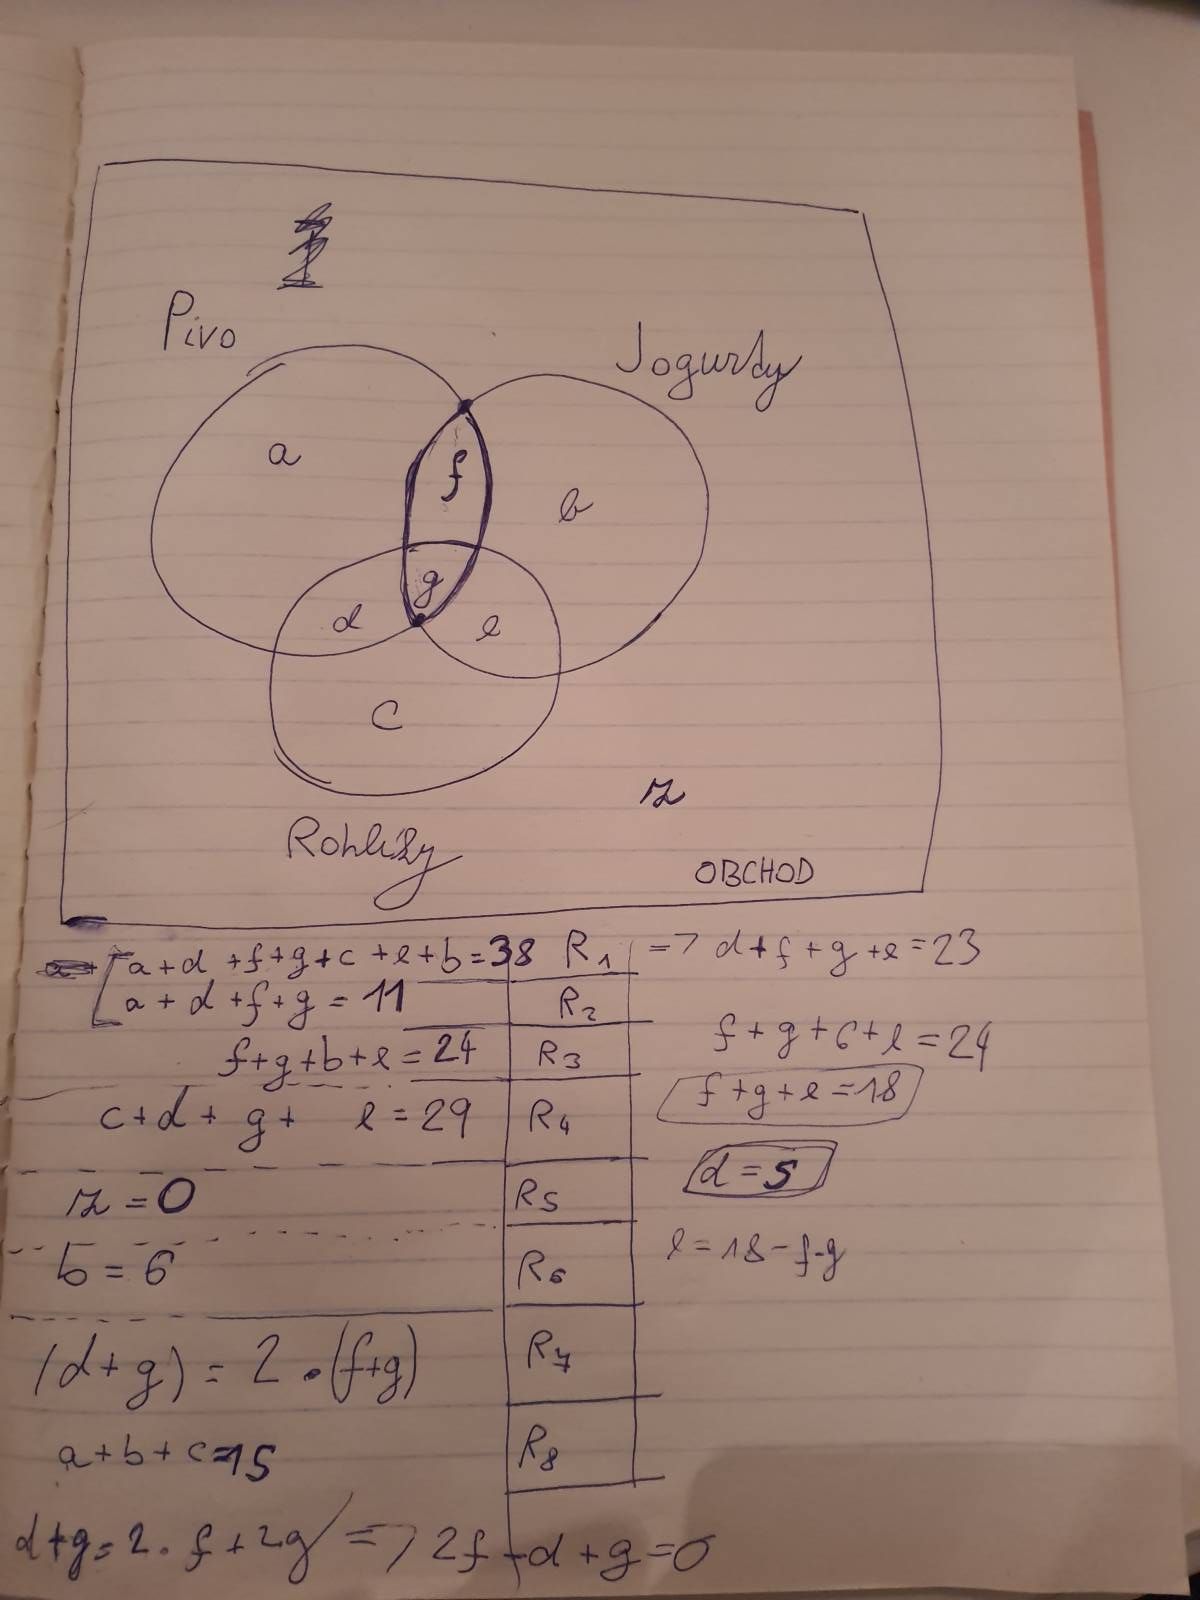 Pivo
Jogurty
a
f
b
g
d
e
c
z
Rohlíky
OBCHOD
a+d+f+g+c+e+b=38 R1 => d+f+g+e=23
a+d+f+g=11 R2
f+g+b+e=24 R3 f+g+6+e=24
f+g+e=18
c+d+g+ e=29 R4
d=5
z=0 R5
e=18-f-g
b=6 R6
(d+g)=2·(f+g) R7
a+b+c=15 R8
d+g=2·f+2g => 2f-d+g=0